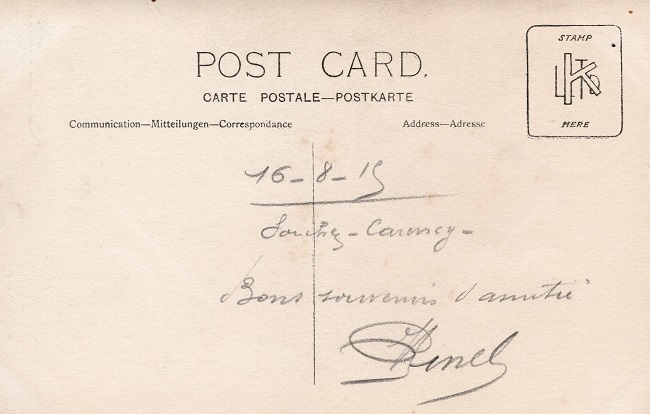 POST CARD.
STAMP
K LTD
HERE
CARTE POSTALE—POSTKARTE
Communication—Mitteilungen—Correspondance
Address—Adresse
16-8-15
Souchez-Carency-
Bons souvenirs d'amitié